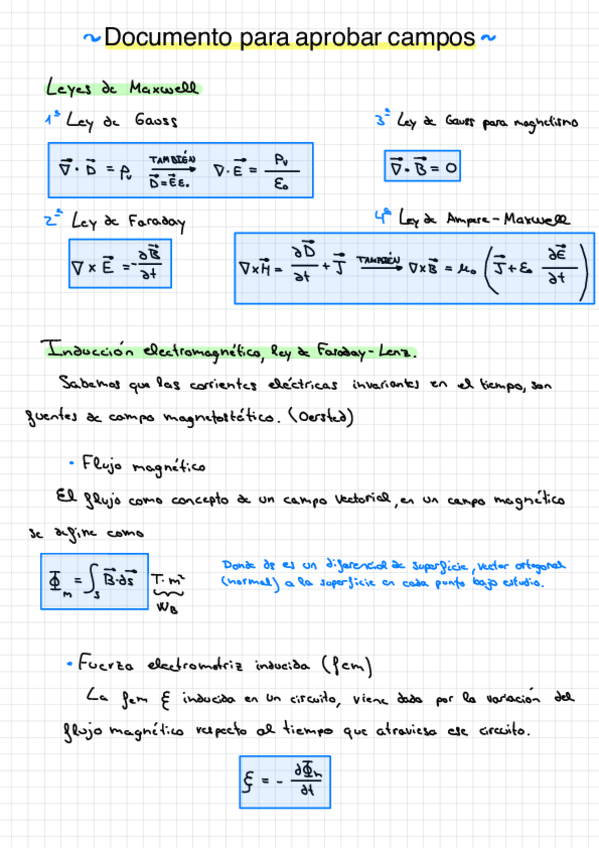 ~Documento para aprobar campos~
Leyes de Maxwell
1ª Ley de Gauss
3ª Ley de Gauss para magnetismo
∇⃗ · D⃗ = ρᵥ TAMBIÉN D⃗=E⃗ε₀ ∇·E⃗ = ρᵥ/ε₀
∇⃗ · B⃗ = 0
2ª Ley de Faraday
4ª Ley de Ampere-Maxwell
∇ x E⃗ = -∂B⃗/∂t
∇xH⃗ = ∂D⃗/∂t + J⃗ TAMBIÉN ∇xB⃗ = μ₀ (J⃗ + ε₀ ∂E⃗/∂t)
Inducción electromagnético, Ley de Faraday-Lenz.
Sabemos que las corrientes eléctricas invariantes en el tiempo, son
fuentes de campo magnetostático. (Oersted)
• Flujo magnético
El flujo como concepto de un campo vectorial, en un campo magnético
se define como
Φₘ = ∫ₛ B⃗·ds⃗ T·m²
WB
Donde ds es un diferencial de superficie, vector ortogonal
(normal) a la superficie en cada punto bajo estudio.
• Fuerza electromotriz inducida (fem)
La fem ξ inducida en un circuito, viene dada por la variación del
flujo magnético respecto al tiempo que atraviesa ese circuito.
ξ = - ∂Φₘ/∂t